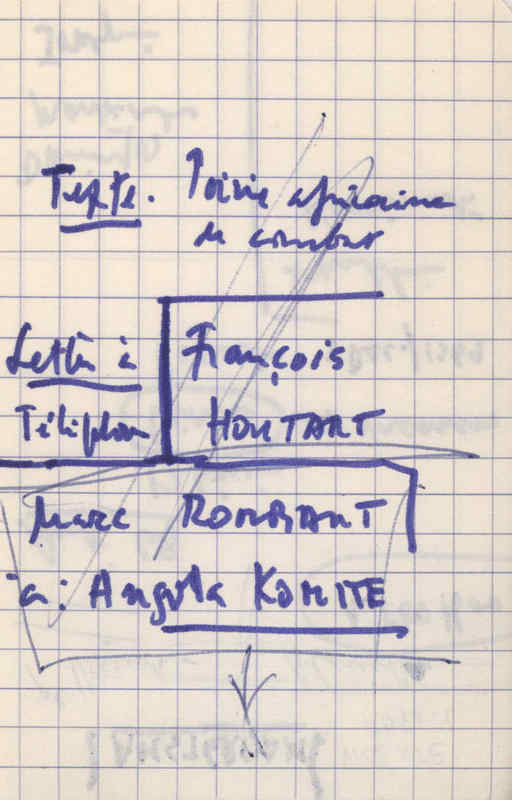 Texte. Poésie africaine
de combat
Lettre à François
Téléphon HOUTART
Marc ROMBAUT
à: Angola KOMITE